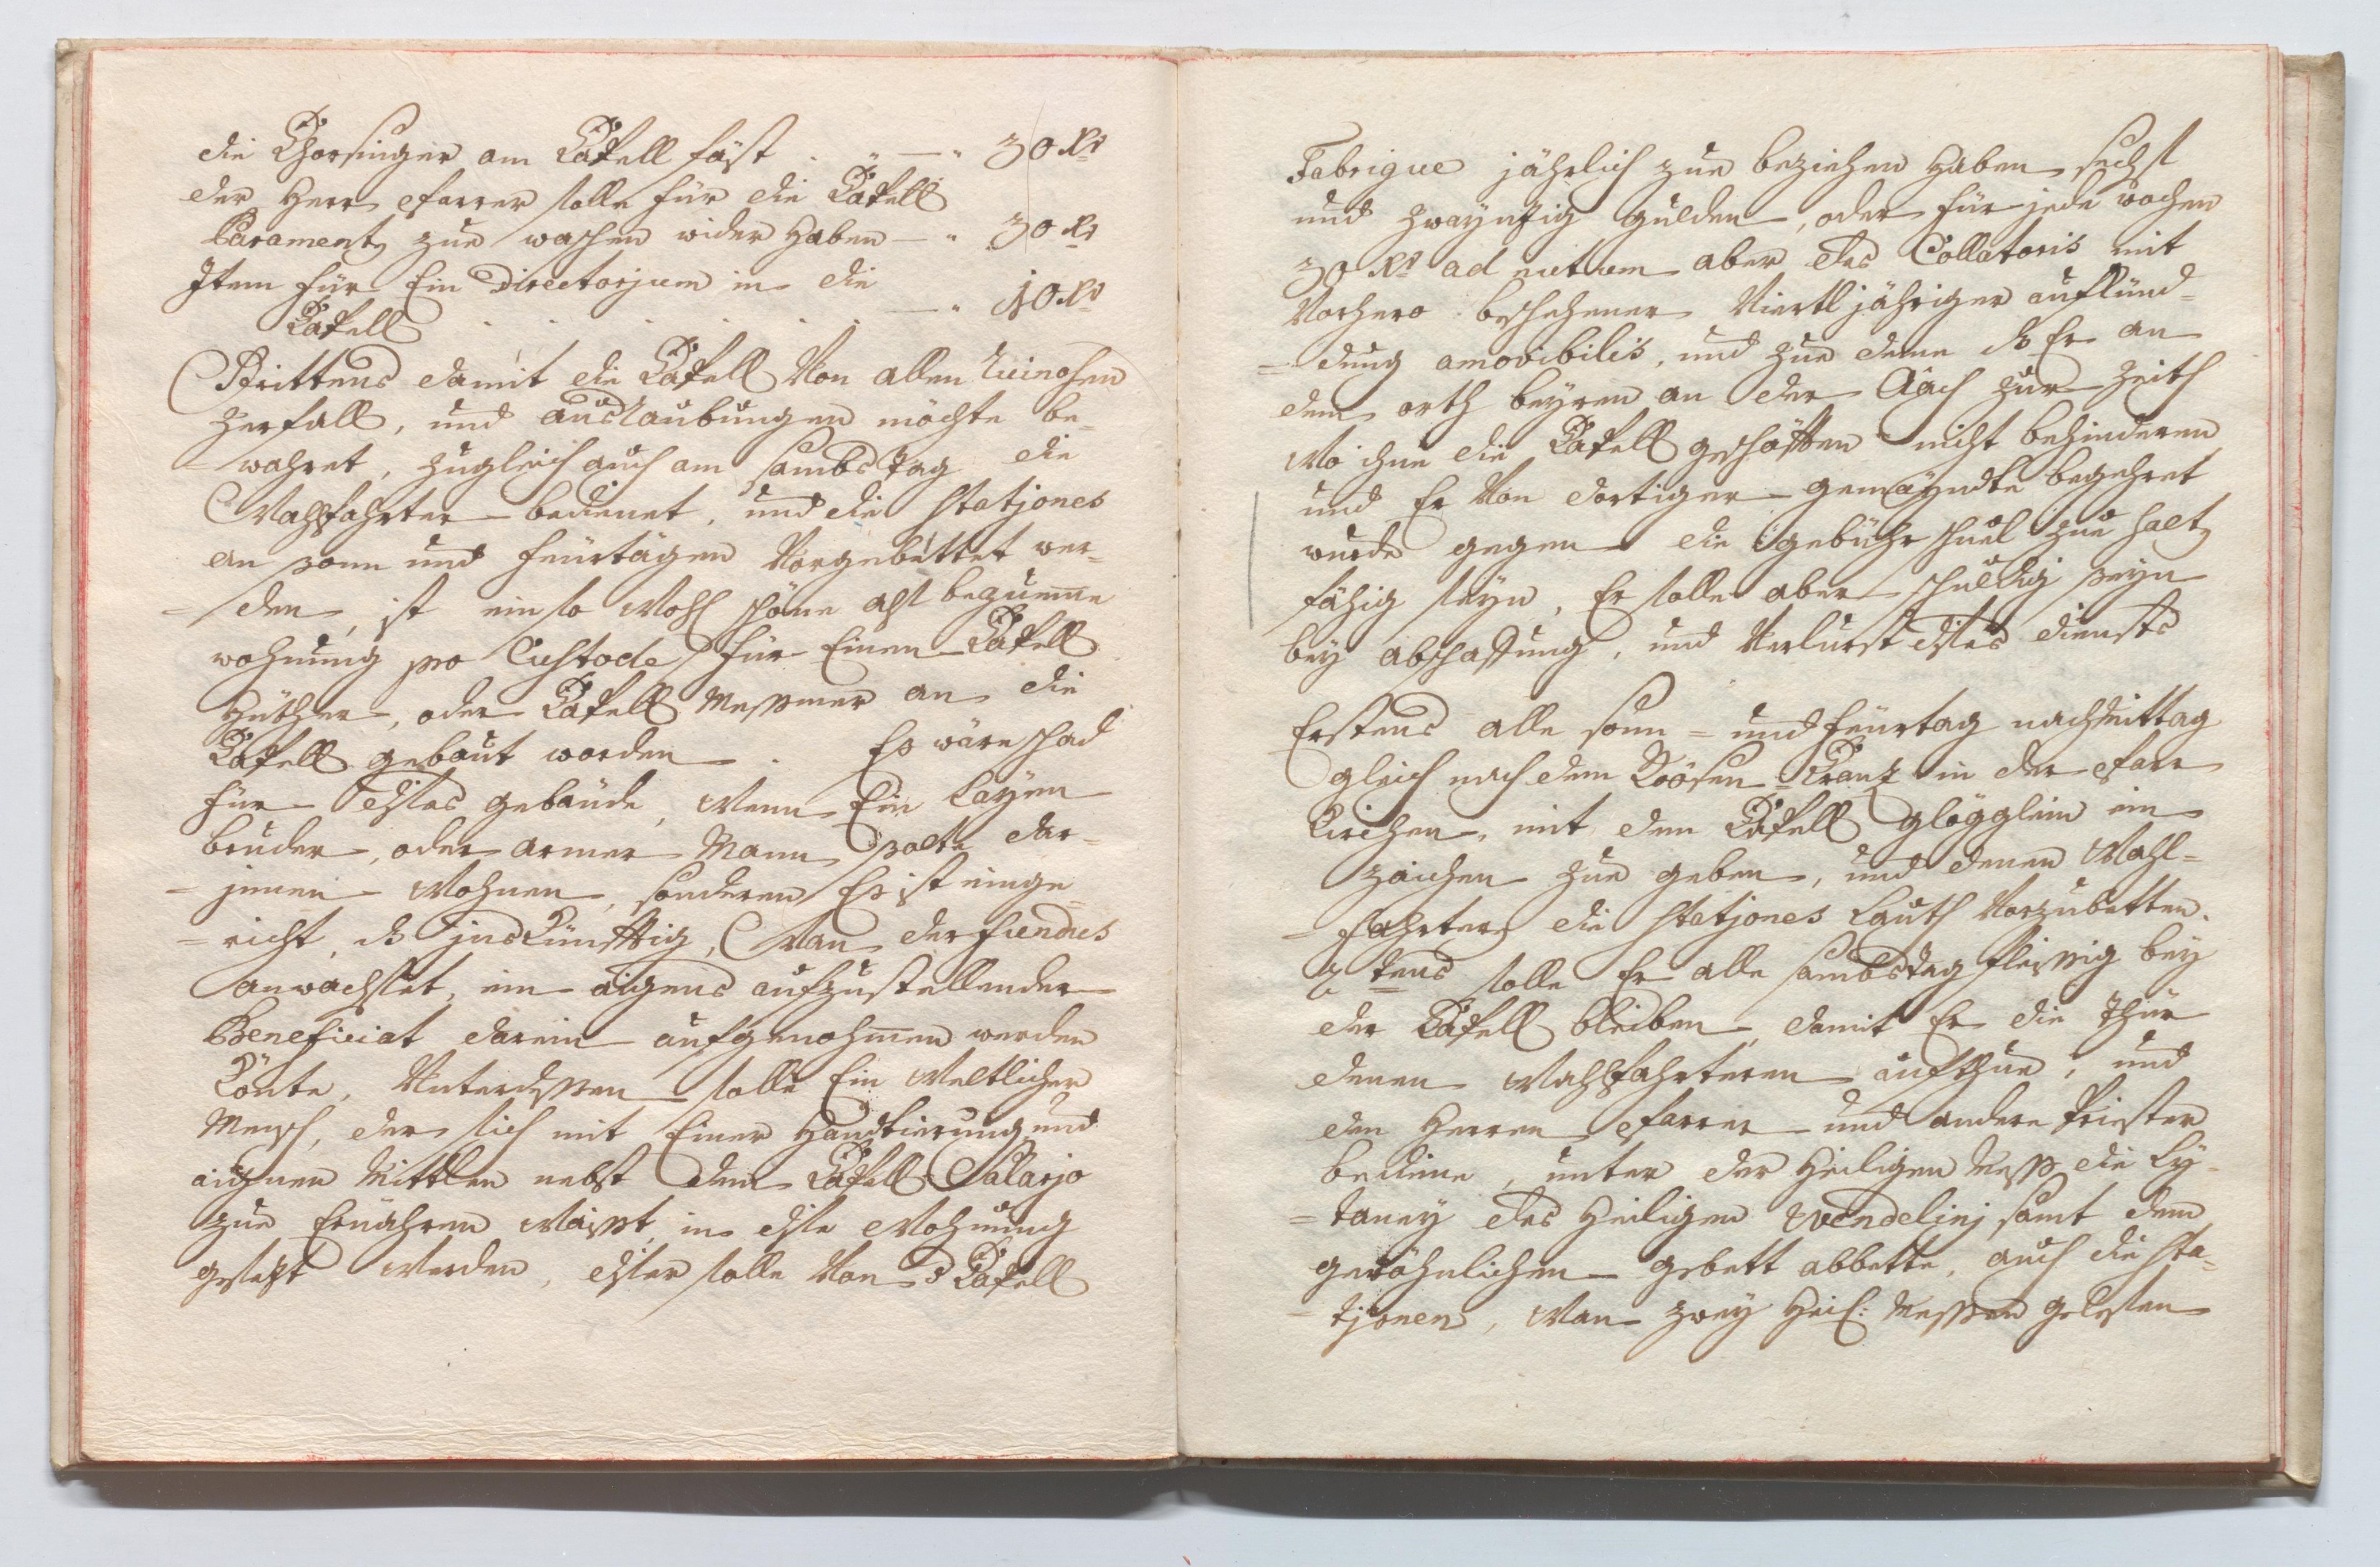 die Chorsinger am Cäpell fäst . „ — „ 30 Xr
der Herr Pfarrer solle für die Cäpell
Parament zue waschen wider haben — „ 30 Xr
Item für Ein Directorjum in die
Cäpell . . . . . . — „ 10 Xr
Drittens damit die Cäpell Von allen
Zerfall, und auslaubungen möchte be-
=wahret, zugleich auch am Sambstag die
Wahlfahrter bedienet, und die Statjones
an sonn und feürtägen Vorgebättet wer-
=den, ist ein so Wohl schöne alß bequeme
wohnung pro Custode für Einen Cäpell
Hüther, oder Cäpell Messmer an die
Cäpell gebaut worden. Es wäre schad
für dises gebäude, Wenn Ein Layen
bruder, oder armer Mann solte dar-
=innen Wohnen, sonderen Es ist einge-
=richt, dß ins Künfftig, Wan der fundus
anwachset, ein aigens aufzustellender
Beneficiat darein aufgenohmen werden
Könte, Unterdessen solle Ein Weltlicher
Mensch, der sich mit Einer Handtierung und
aignen Mittlen nebst dem Cäpell Salarjo
zue Ernähren Waisst, in dise Wohnung
gesetzt Werden, diser solle Von d Cäpell
Fabrique jährlich zue beziehen haben sechs
und zwayntzig gulden, oder für jede wochen
30 Xr ad nutum aber des Collatoris mit
Vorhero beschehener Viertljähriger aufkünd-
=dung amovibilis, und zue deme dß Er an
dem orth beyren an der Aach zur Zeith
Wo ihne die Cäpell geschäfften nicht behinderen
und Er Von dortiger gemayndte begehret
wurde gegen die gebühr schuel zue halt
fähig seyn, Er solle aber schuldig seyn
bey abschaffung, und Verlurst dises diensts
Erstens alle sonn= und feürtag nachmittag
gleich nach dem Roosen=Cranz in der Pfarr
Kirchen, mit dem Cäpell glögglein ein
zaichen zue geben, und denen Wahl-
=fahrter die Statjones Lauth Vorzubetten.
2tens solle Er alle sambstag fleissig bey
der Cäpell bleiben, damit Er die thür
denen Wahlfahrteren aufthue, und
den Herren Pfarrer und andere Priester
bediene, unter der Heiligen Mess die Ly-
=taney des Heiligen Wendelinj samt dem
gewöhnlichen gebett abbette, auch die Sta-
=tjonen, Wan zwey Heil: Messen gelesen